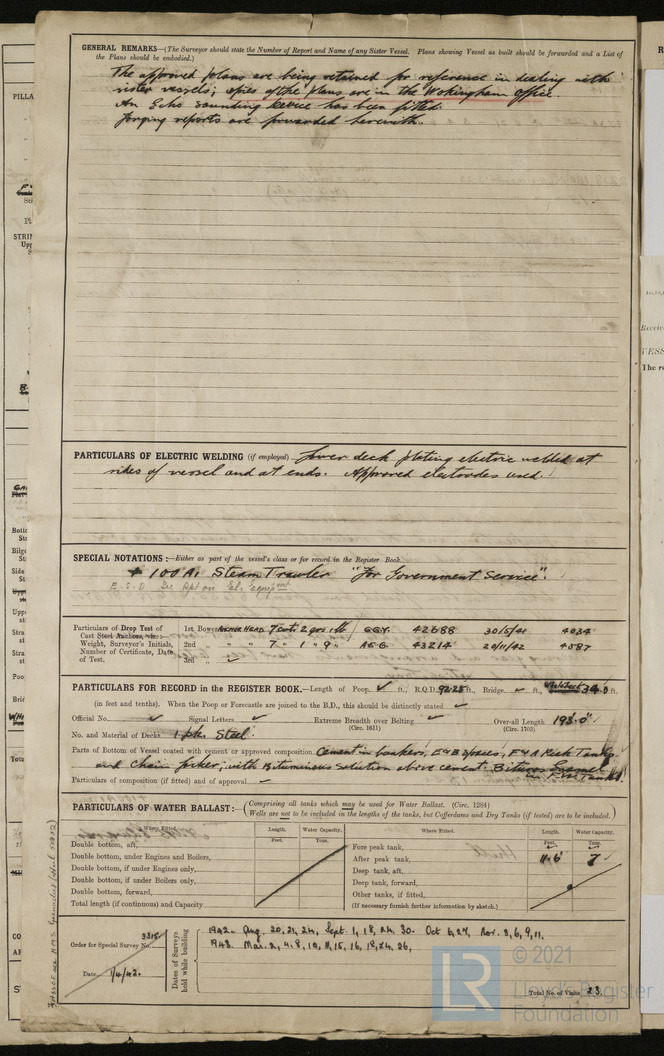 GENERAL REMARKS—(The Surveyor should state the Number of Report and Name of any Sister Vessel. Plans showing Vessel as built should be forwarded and a List of
the Plans should be embodied.)
The approved plans are being retained for reference in dealing with
sister vessels; copies of the plans are in the Wokingham Office.
An Echo sounding device has been fitted.
Forging reports are forwarded herewith.
PARTICULARS OF ELECTRIC WELDING (if employed) Lower deck plating electric welded at
sides of vessel and at ends. Approved electrodes used.
SPECIAL NOTATIONS:—Either as part of the vessel's class or for record in the Register Book
+ 100 A1 Steam Trawler "For Government Service".
E.S.D. See Rpt on El. Equipmt
Particulars of Drop Test of
Cast Steel Anchors, viz.:—
Weight, Surveyor's Initials,
Number of Certificate, Date
of Test.
1st Bower ANCHOR HEAD 7 cwts 2 qrs 1 lb 42688 30/5/41 4034
2nd " " 7 " 1 " 9 " 43214 20/11/42 4587
3rd "
PARTICULARS FOR RECORD in the REGISTER BOOK.—Length of Poop ft., R.Q.D. 92.25 ft., Bridge ft., 34.0 ft.
(in feet and tenths). When the Poop or Forecastle are joined to the B.D., this should be distinctly stated
Official No. Signal Letters Extreme Breadth over Belting Over-all Length 193'.0"
(Circ. 1611) (Circ. 1703)
No. and Material of Decks 1 pk. Steel.
Parts of Bottom of Vessel coated with cement or approved composition Cement in bunkers, E & B spaces, F & A Peak Tanks
and Chain locker, with Bituminous solution above cement. Bitumos Enamel
in Tanks.
Particulars of composition (if fitted) and of approval
PARTICULARS OF WATER BALLAST:— (Comprising all tanks which may be used for Water Ballast. (Circ. 1284)
Wells are not to be included in the lengths of the tanks, but Cofferdams and Dry Tanks (if tested) are to be included.)
Where Fitted. Length. Water Capacity. Where Fitted. Length. Water Capacity.
Feet. Tons. Feet. Tons.
Double bottom, aft, Fore peak tank,
Double bottom, under Engines and Boilers, After peak tank, 11.6 7
Double bottom, if under Engines only, Deep tank, aft,
Double bottom, if under Boilers only, Deep tank, forward,
Double bottom, forward, Other tanks, if fitted,
Total length (if continuous) and Capacity (If necessary furnish further information by sketch.)
Order for Special Survey No. 3315
Date 1/4/42.
Dates of Surveys
held while building
1942- Aug. 20, 21, 24, Sept. 1, 18, 24, 30. Oct 6, 27, Nov. 3, 6, 9, 11.
1943. Mar. 2, 4, 8, 10, 11, 15, 16, 18, 24, 26,
Total No. of Visits 23.
© 2021
LR
Lloyd's Register
Foundation